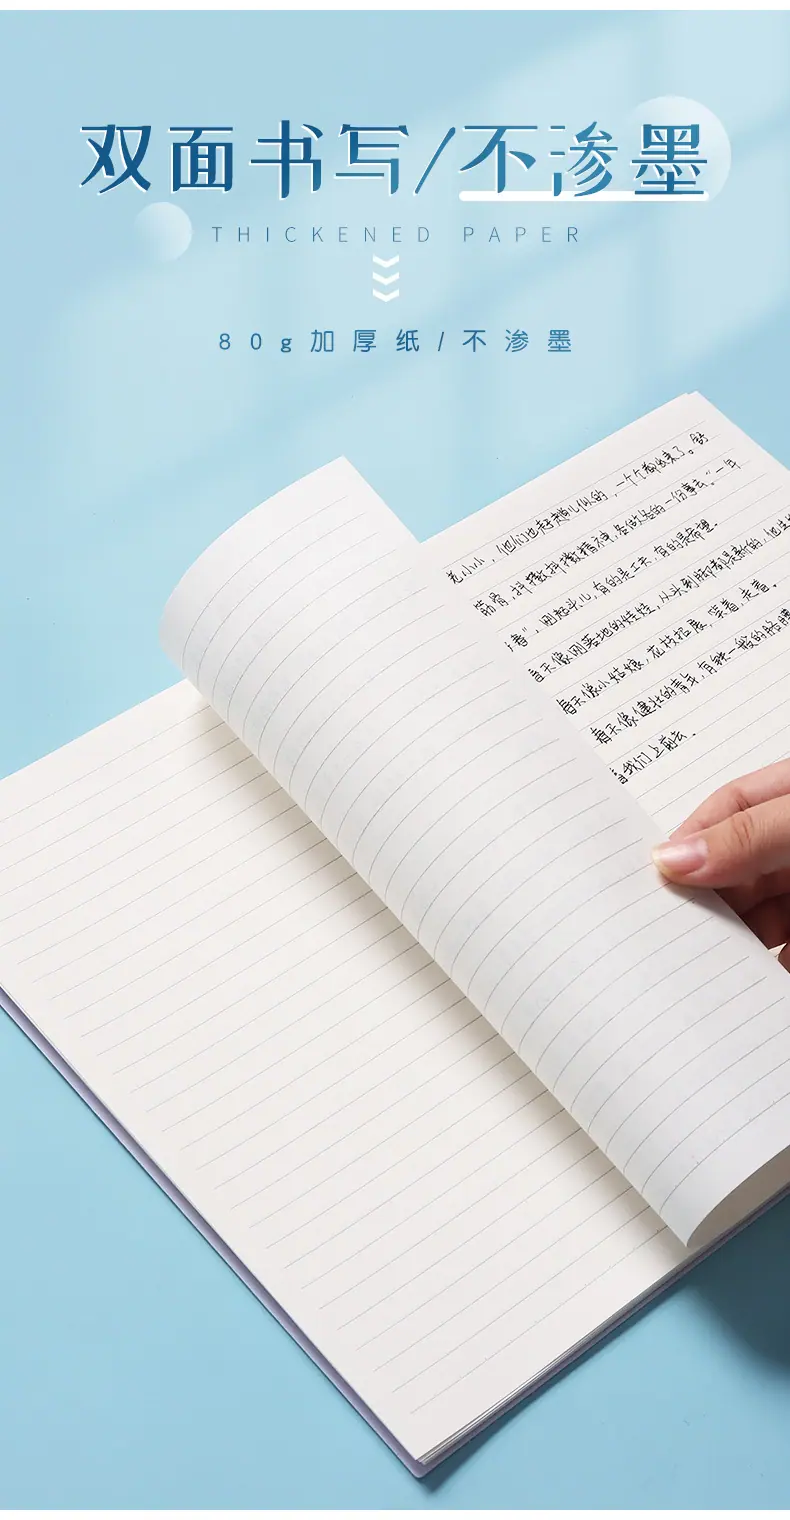 双面书写/不渗墨
THICKENED PAPER
80g加厚纸/不渗墨
老小小，他们也赶趟儿似的，一个个都出来了。舒
筋骨，抖擞抖擞精神，各做各的一份事去。"一年
春"，刚起头儿，有的是工夫，有的是希望。
春天像刚落地的娃娃，从头到脚都是新的，他生
春天像小姑娘，花枝招展，笑着，走着。
春天像健壮的青年，有铁一般的胳膊
着我们上前去。